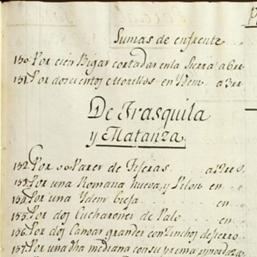 Sumas de enfrente
130 Por cien Bigar cortadar en la Sierra a 6 rr
131 Por doscientos Morillos en Idem a 3 rr
De Trasquila
y Matanza
132 Por 50 Parer de Tiseras
133 Por una Romana nueva, y Pilon en
134 Por una Idem bieja en
135 Por dos Cucharoner de Palo en
136 Por dos Canoar grander con Zinchos de fierro
137 Por una Idha mediana con su prensa